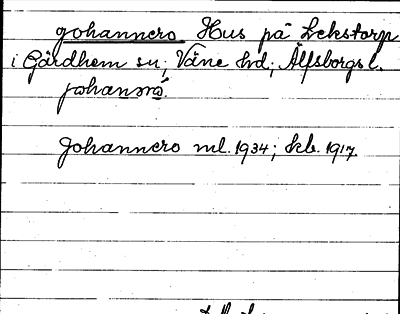 Johannero Hus på Lekstorp
i Gärdhem sn; Väne hd; Älfsborgs l.
johanærò.
Johannero ml. 1934; kb. 1917.